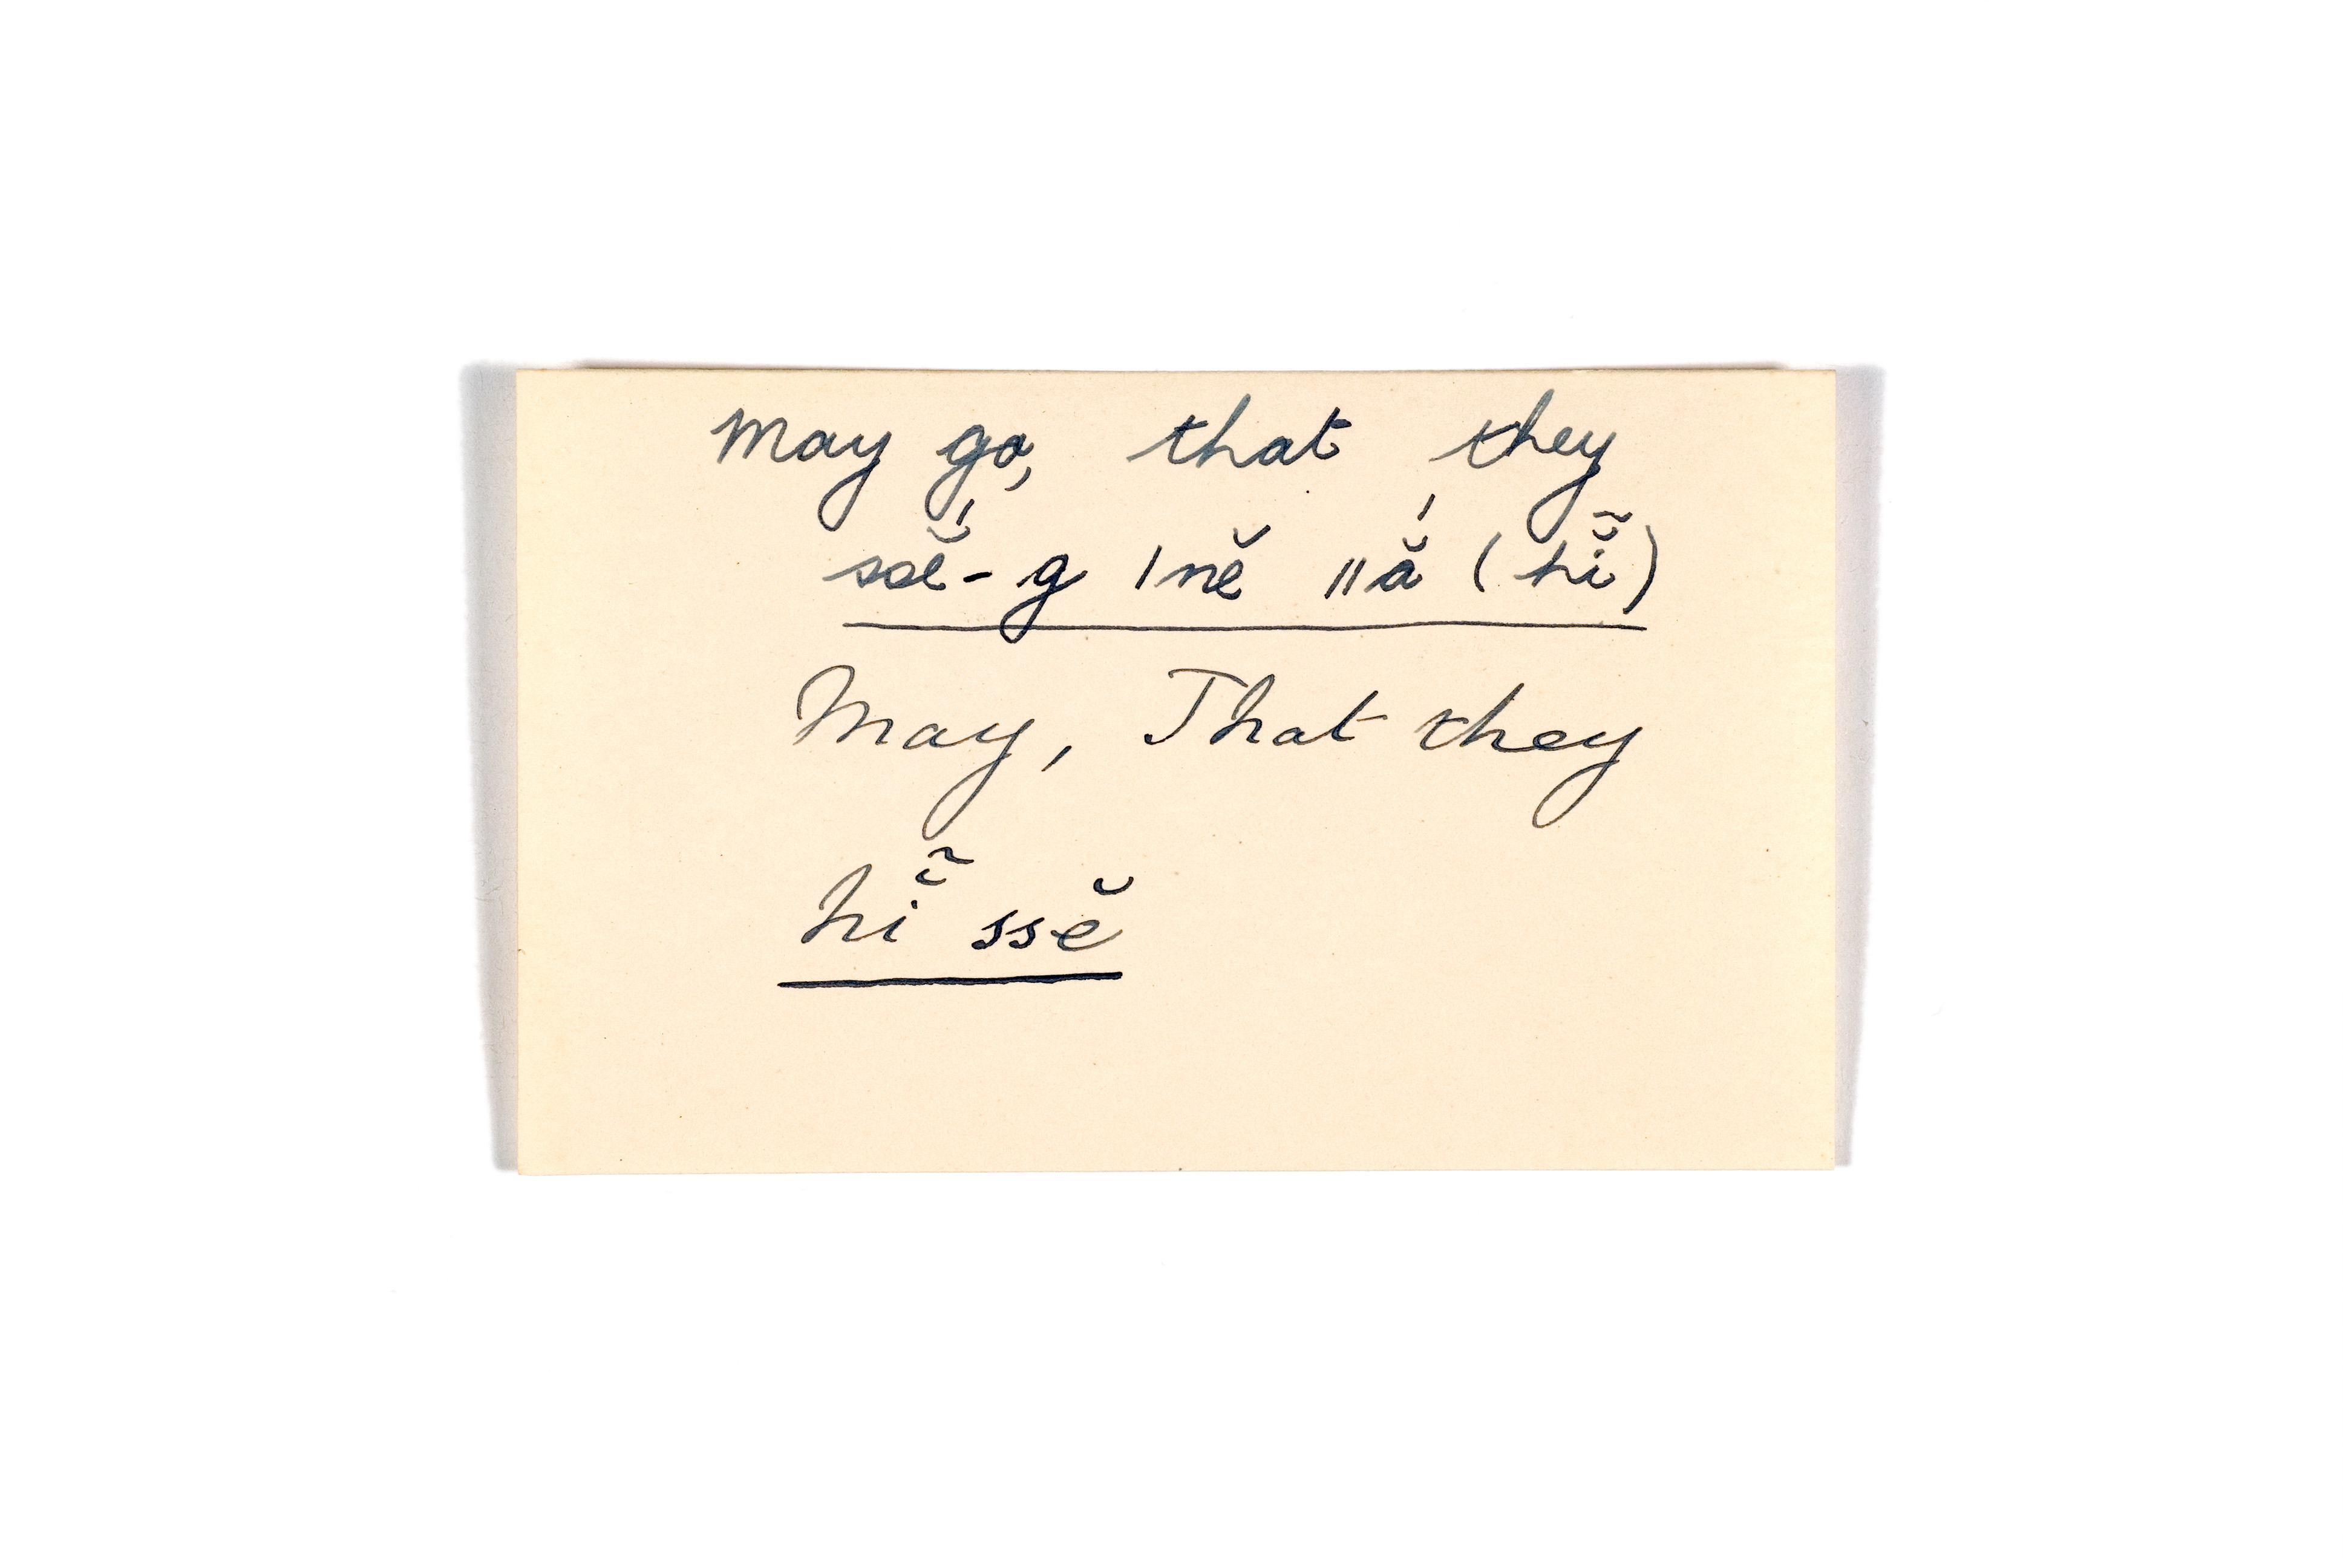 May go, that they
sœ̆́-g |nĕ ||ắ (hĭ̃)
May, That they
hĭ̃ ssĕ